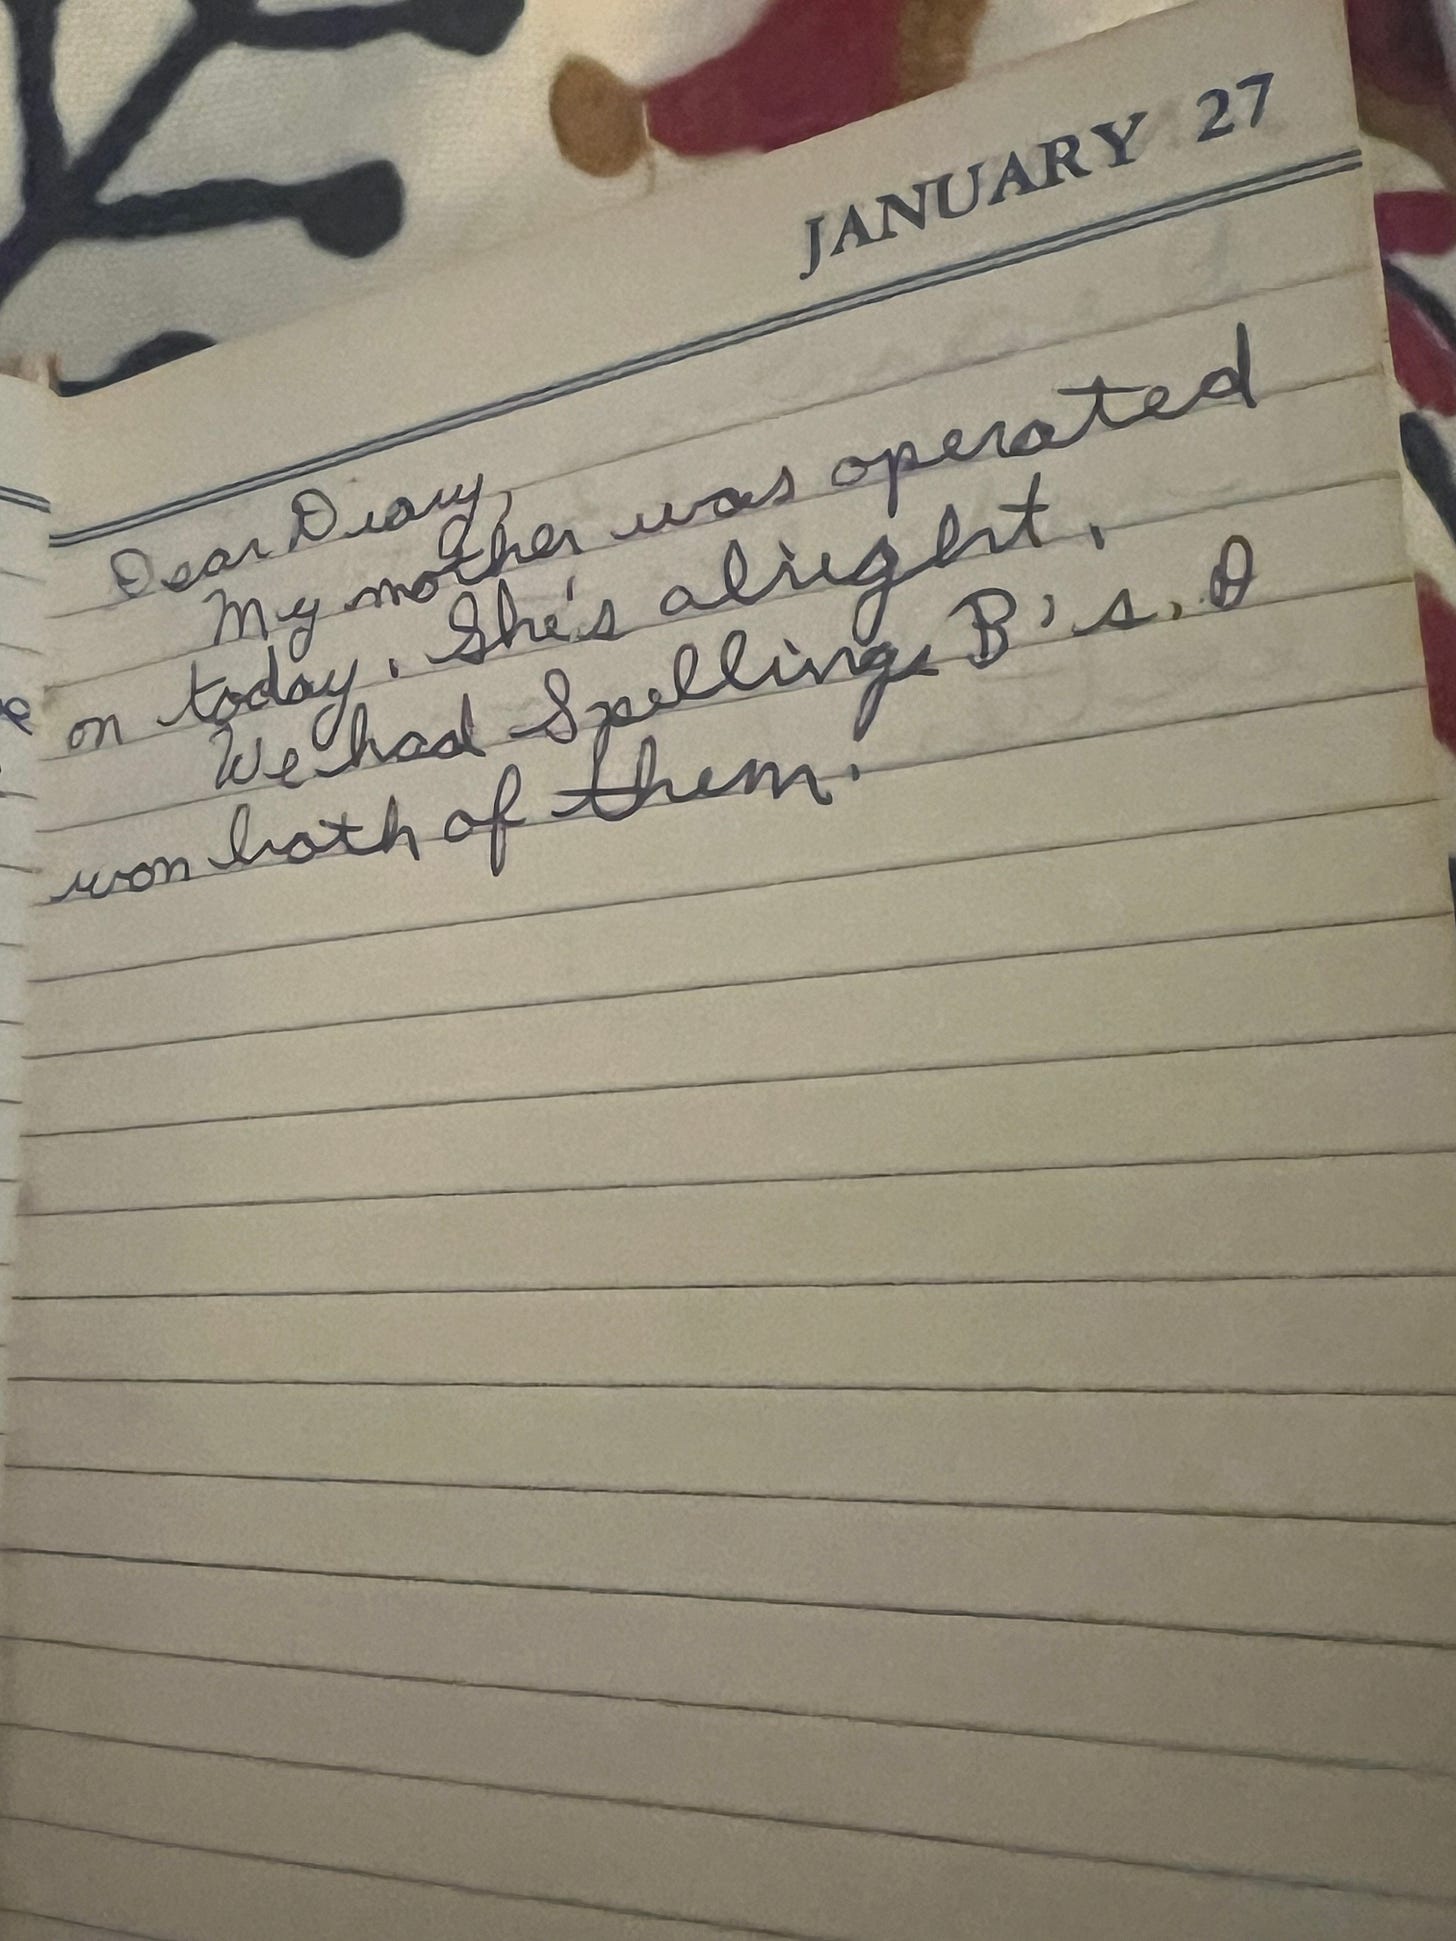 JANUARY 27
Dear Diary,
My mother was operated
on today. She's alright.
We had Spelling B's. I
won both of them.